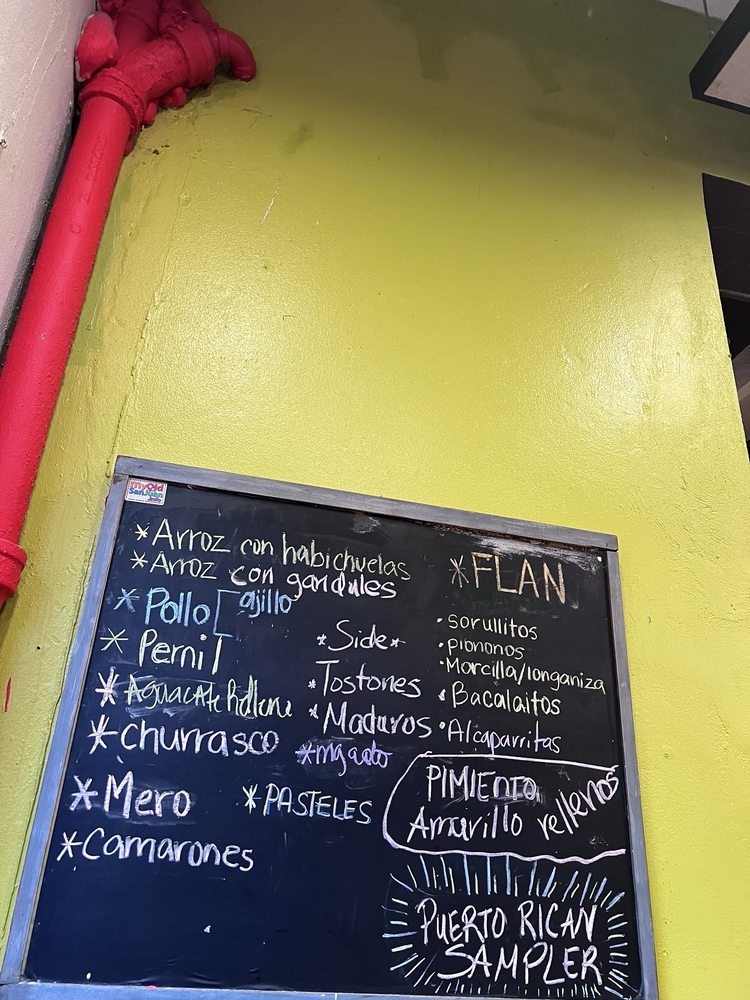 myOld
SanJuan
*Arroz con habichuelas
*Arroz con gandules
*Pollo [ ajillo
*Pernil
*Aguacate Rellene
*churrasco
*Mero
*Camarones
*Side*
*Tostones
*Maduros
*PASTELES
*FLAN
•sorullitos
•piononos
•Morcilla/longaniza
•Bacalaitos
•Alcaparritas
PIMIENTO
Amarillo rellenos
PUERTO RICAN
SAMPLER